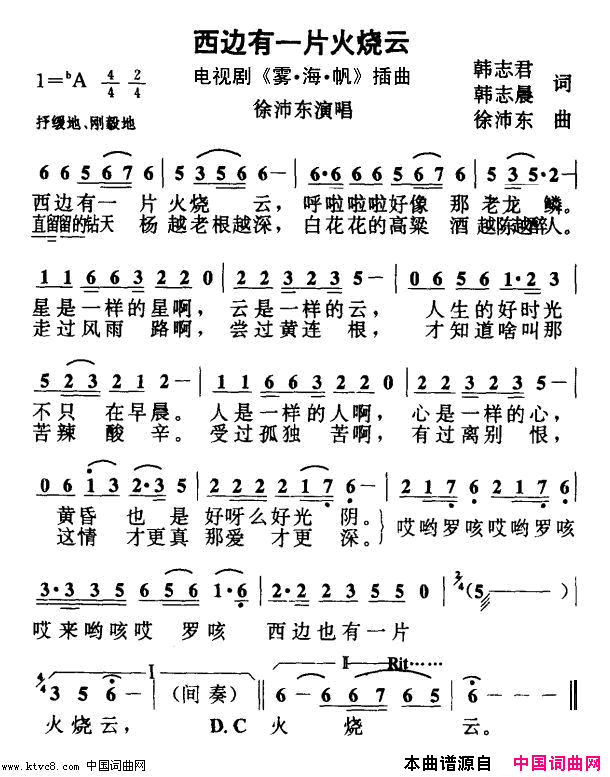 西边有一片火烧云
1=ᵇA 4/4 2/4
电视剧《雾·海·帆》插曲
韩志君
韩志晨 词
徐沛东 曲
抒缓地、刚毅地
徐沛东演唱
6 6 5 6 7 6 | 5 3 5 6 6 - | 6·6 6 6 5 6 7 6 | 5 3 5 2 - |
西边有一 片火烧 云， 呼啦啦啦好像 那 老龙 鳞。
直留留的钻天 杨 越老根越深， 白花花的高粱 酒 越陈越醉人。
1 1 6 6 3 2 2 0 | 2 2 3 3 2 3 5 - | 0 5 2 5 6 1·2 3 |
星是一样的星啊， 云是一样的云， 人生的好时光
走过风雨 路啊， 尝过黄连 根， 才知道啥叫那
5 2 3 2 1 2 - | 1 1 6 6 3 2 2 0 | 2 2 3 3 2 3 5 - |
不只 在早晨。 人是一样的人啊， 心是一样的心，
苦辣 酸 辛。 受过孤独 苦啊， 有过离别 恨，
0 6 1 3 2·3 5 | 1 2 3 2 1 7 6 - | 2 2 1 7 6 2 2 1 7 6 |
黄昏 也 是 好呀么好光 阴。 哎哟罗咳哎哟罗咳
这情 才更真 那爱 才更 深。
3·3 3 5 6 5 6 1·6 | 2·2 2 3 5 5 0 | 2/4 (5 - |
哎来哟咳哎 罗咳 西边也有一片
I II Rit……
4/4 3 5 6 - | (间奏) | 6 - 6 6 7 6 5 | 6 - - - ‖
火烧云， D.C 火 烧 云。
www.ktvc8.com 中国词曲网
本曲谱源自 中国词曲网